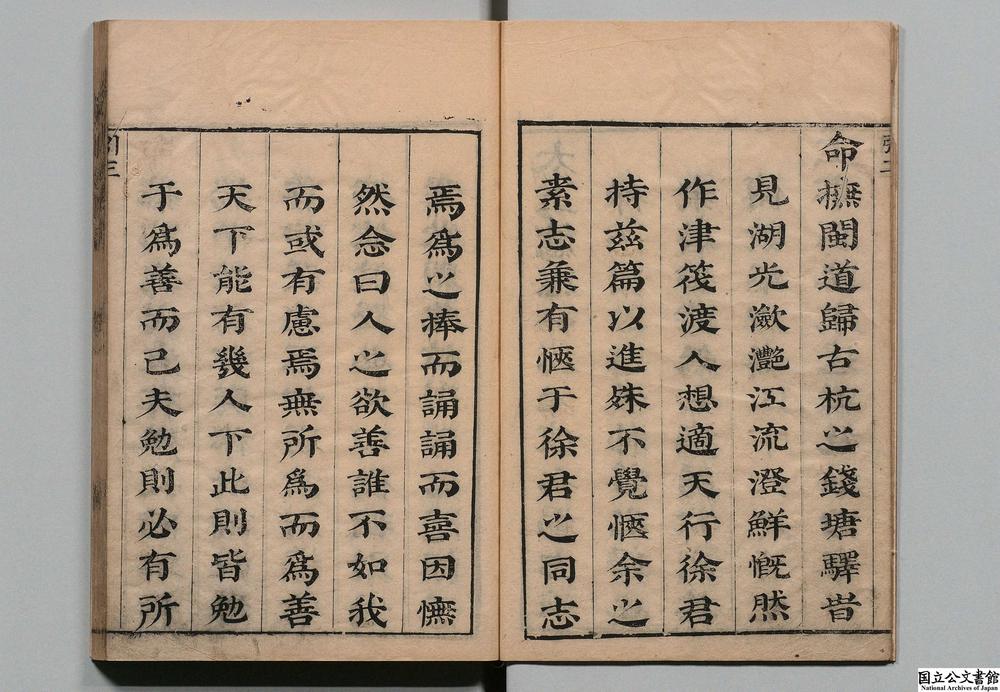 命撫閩道歸古杭之錢塘驛昔
見湖光瀲灔江流澄鮮慨然
作津筏渡人想適天行徐君
持兹篇以進殊不覺愜余之
素志兼有愜于徐君之同志
焉爲之捧而誦誦而喜因憮
然念曰人之欲善誰不如我
而或有慮焉無所爲而爲善
天下能有幾人下此則皆勉
于爲善而已夫勉則必有所
国立公文書館
National Archives of Japan